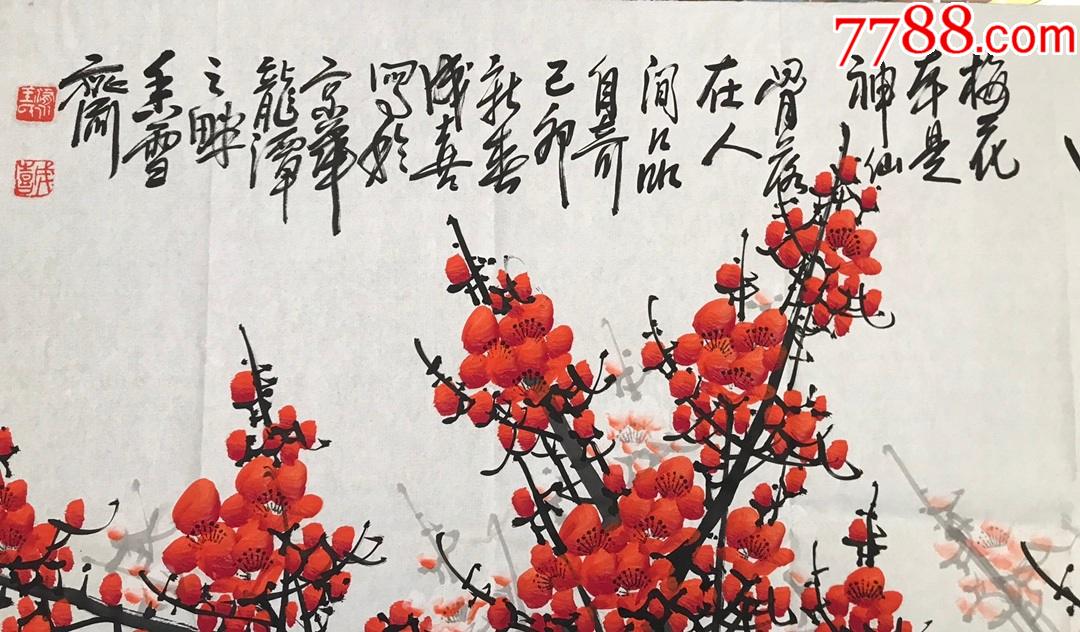 7788.com
梅花
本是
神仙
骨落
在人
间品
自奇
己卯
新春
成喜
写於
京華
龍潭
之畔
香雪
齋
成
喜